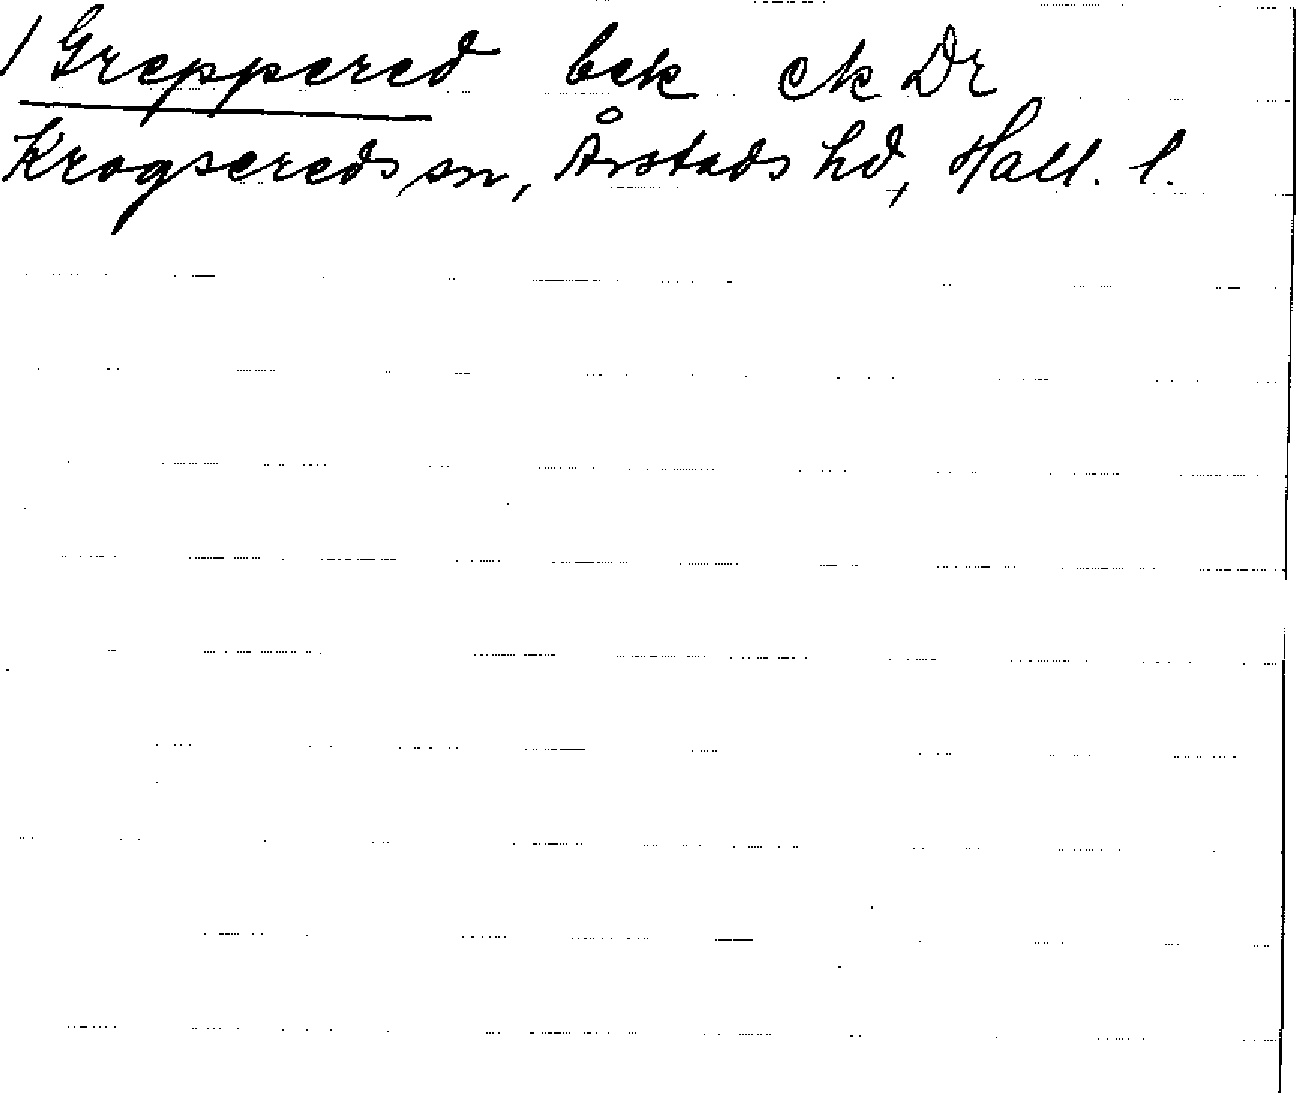 / Greppered bek ek Dr
Krogsereds sn, Årstads hd, Hall. l.